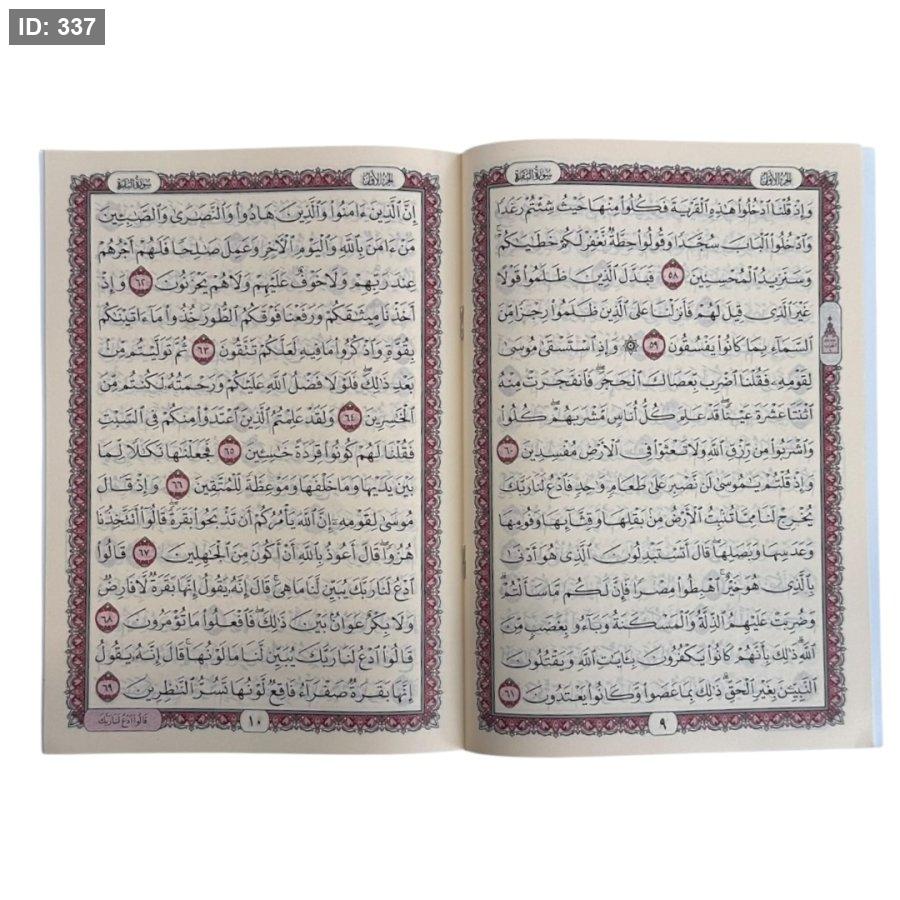 ID: 337
سورة البقرة
الجزء الأول
وَإِذْ قُلْنَا ٱدْخُلُوا۟ هَٰذِهِ ٱلْقَرْيَةَ فَكُلُوا۟ مِنْهَا حَيْثُ شِئْتُمْ رَغَدًا
وَٱدْخُلُوا۟ ٱلْبَابَ سُجَّدًا وَقُولُوا۟ حِطَّةٌ نَّغْفِرْ لَكُمْ خَطَٰيَٰكُمْ ۚ
وَسَنَزِيدُ ٱلْمُحْسِنِينَ ٥٨ فَبَدَّلَ ٱلَّذِينَ ظَلَمُوا۟ قَوْلًا
غَيْرَ ٱلَّذِى قِيلَ لَهُمْ فَأَنزَلْنَا عَلَى ٱلَّذِينَ ظَلَمُوا۟ رِجْزًا مِّنَ
ٱلسَّمَآءِ بِمَا كَانُوا۟ يَفْسُقُونَ ٥٩ ۞ وَإِذِ ٱسْتَسْقَىٰ مُوسَىٰ
لِقَوْمِهِۦ فَقُلْنَا ٱضْرِب بِّعَصَاكَ ٱلْحَجَرَ ۖ فَٱنفَجَرَتْ مِنْهُ
ٱثْنَتَا عَشْرَةَ عَيْنًا ۖ قَدْ عَلِمَ كُلُّ أُنَاسٍ مَّشْرَبَهُمْ ۖ كُلُوا۟
وَٱشْرَبُوا۟ مِن رِّزْقِ ٱللَّهِ وَلَا تَعْثَوْا۟ فِى ٱلْأَرْضِ مُفْسِدِينَ ٦٠
وَإِذْ قُلْتُمْ يَٰمُوسَىٰ لَن نَّصْبِرَ عَلَىٰ طَعَامٍ وَٰحِدٍ فَٱدْعُ لَنَا رَبَّكَ
يُخْرِجْ لَنَا مِمَّا تُنۢبِتُ ٱلْأَرْضُ مِنۢ بَقْلِهَا وَقِثَّآئِهَا وَفُومِهَا
وَعَدَسِهَا وَبَصَلِهَا ۖ قَالَ أَتَسْتَبْدِلُونَ ٱلَّذِى هُوَ أَدْنَىٰ
بِٱلَّذِى هُوَ خَيْرٌ ۚ ٱهْبِطُوا۟ مِصْرًا فَإِنَّ لَكُم مَّا سَأَلْتُمْ ۗ
وَضُرِبَتْ عَلَيْهِمُ ٱلذِّلَّةُ وَٱلْمَسْكَنَةُ وَبَآءُو بِغَضَبٍ مِّنَ
ٱللَّهِ ۗ ذَٰلِكَ بِأَنَّهُمْ كَانُوا۟ يَكْفُرُونَ بِـَٔايَٰتِ ٱللَّهِ وَيَقْتُلُونَ
ٱلنَّبِيِّـۧنَ بِغَيْرِ ٱلْحَقِّ ۗ ذَٰلِكَ بِمَا عَصَوا۟ وَّكَانُوا۟ يَعْتَدُونَ ٦١
٩
سورة البقرة
الجزء الأول
إِنَّ ٱلَّذِينَ ءَامَنُوا۟ وَٱلَّذِينَ هَادُوا۟ وَٱلنَّصَٰرَىٰ وَٱلصَّٰبِـِٔينَ
مَنْ ءَامَنَ بِٱللَّهِ وَٱلْيَوْمِ ٱلْـَٔاخِرِ وَعَمِلَ صَٰلِحًا فَلَهُمْ أَجْرُهُمْ
عِندَ رَبِّهِمْ وَلَا خَوْفٌ عَلَيْهِمْ وَلَا هُمْ يَحْزَنُونَ ٦٢ وَإِذْ
أَخَذْنَا مِيثَٰقَكُمْ وَرَفَعْنَا فَوْقَكُمُ ٱلطُّورَ خُذُوا۟ مَآ ءَاتَيْنَٰكُم
بِقُوَّةٍ وَٱذْكُرُوا۟ مَا فِيهِ لَعَلَّكُمْ تَتَّقُونَ ٦٣ ثُمَّ تَوَلَّيْتُم مِّنۢ
بَعْدِ ذَٰلِكَ ۖ فَلَوْلَا فَضْلُ ٱللَّهِ عَلَيْكُمْ وَرَحْمَتُهُۥ لَكُنتُم مِّنَ
ٱلْخَٰسِرِينَ ٦٤ وَلَقَدْ عَلِمْتُمُ ٱلَّذِينَ ٱعْتَدَوْا۟ مِنكُمْ فِى ٱلسَّبْتِ
فَقُلْنَا لَهُمْ كُونُوا۟ قِرَدَةً خَٰسِـِٔينَ ٦٥ فَجَعَلْنَٰهَا نَكَٰلًا لِّمَا
بَيْنَ يَدَيْهَا وَمَا خَلْفَهَا وَمَوْعِظَةً لِّلْمُتَّقِينَ ٦٦ وَإِذْ قَالَ
مُوسَىٰ لِقَوْمِهِۦٓ إِنَّ ٱللَّهَ يَأْمُرُكُمْ أَن تَذْبَحُوا۟ بَقَرَةً ۖ قَالُوٓا۟ أَتَتَّخِذُنَا
هُزُوًا ۖ قَالَ أَعُوذُ بِٱللَّهِ أَنْ أَكُونَ مِنَ ٱلْجَٰهِلِينَ ٦٧ قَالُوا۟
ٱدْعُ لَنَا رَبَّكَ يُبَيِّن لَّنَا مَا هِىَ ۚ قَالَ إِنَّهُۥ يَقُولُ إِنَّهَا بَقَرَةٌ لَّا فَارِضٌ
وَلَا بِكْرٌ عَوَانٌۢ بَيْنَ ذَٰلِكَ ۖ فَٱفْعَلُوا۟ مَا تُؤْمَرُونَ ٦٨
قَالُوا۟ ٱدْعُ لَنَا رَبَّكَ يُبَيِّن لَّنَا مَا لَوْنُهَا ۚ قَالَ إِنَّهُۥ يَقُولُ
إِنَّهَا بَقَرَةٌ صَفْرَآءُ فَاقِعٌ لَّوْنُهَا تَسُرُّ ٱلنَّٰظِرِينَ ٦٩
١٠
قَالُوا ادْعُ لَنَا رَبَّكَ